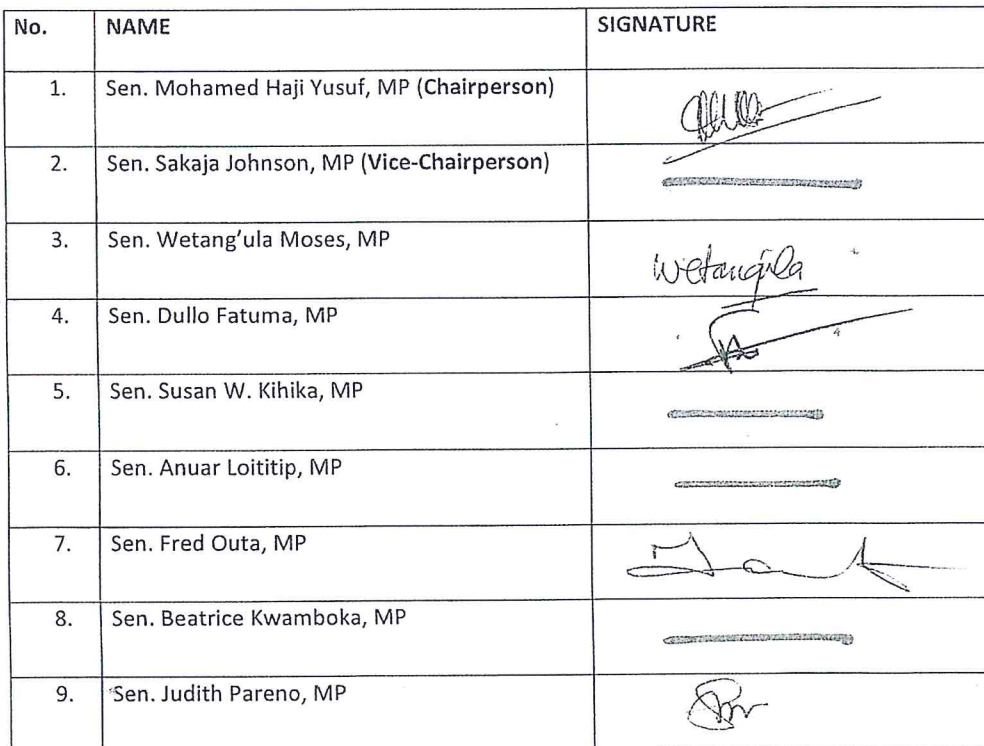 No. NAME SIGNATURE
1. Sen. Mohamed Haji Yusuf, MP (Chairperson)
2. Sen. Sakaja Johnson, MP (Vice-Chairperson)
3. Sen. Wetang'ula Moses, MP Wetang'ula
4. Sen. Dullo Fatuma, MP
5. Sen. Susan W. Kihika, MP
6. Sen. Anuar Loititip, MP
7. Sen. Fred Outa, MP
8. Sen. Beatrice Kwamboka, MP
9. Sen. Judith Pareno, MP